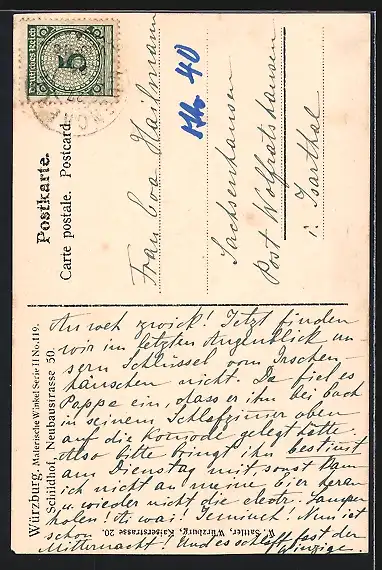 Deutsches Reich
5
Postkarte.
Carte postale. Postcard.
Frau Eva Heilmann
Sachsenhausen
Post Wolfratshausen
i. Isarthal
Würzburg, Malerische Winkel Serie II No. 119.
Schildhof, Neubaustrasse 50.
W. Sattler, Würzburg, Kaiserstrasse 20.
Au weh zwick! Jetzt finden
wir im letzten Augenblick un
sern Schlüssel vom
häuschen nicht. Da fiel es
Pappe ein, dass er ihn bei
in seinem Schlafzimmer oben
auf die Komode gelegt hatte.
Also bitte bringt ihn bestimmt
am Dienstag mit sonst kann
ich nicht an meine Eier heran
u. wieder nicht die electr. Lampe
holen! Ai wai! Nun ist
schon
Mitternacht! Und es schläft fast der
Winzige.